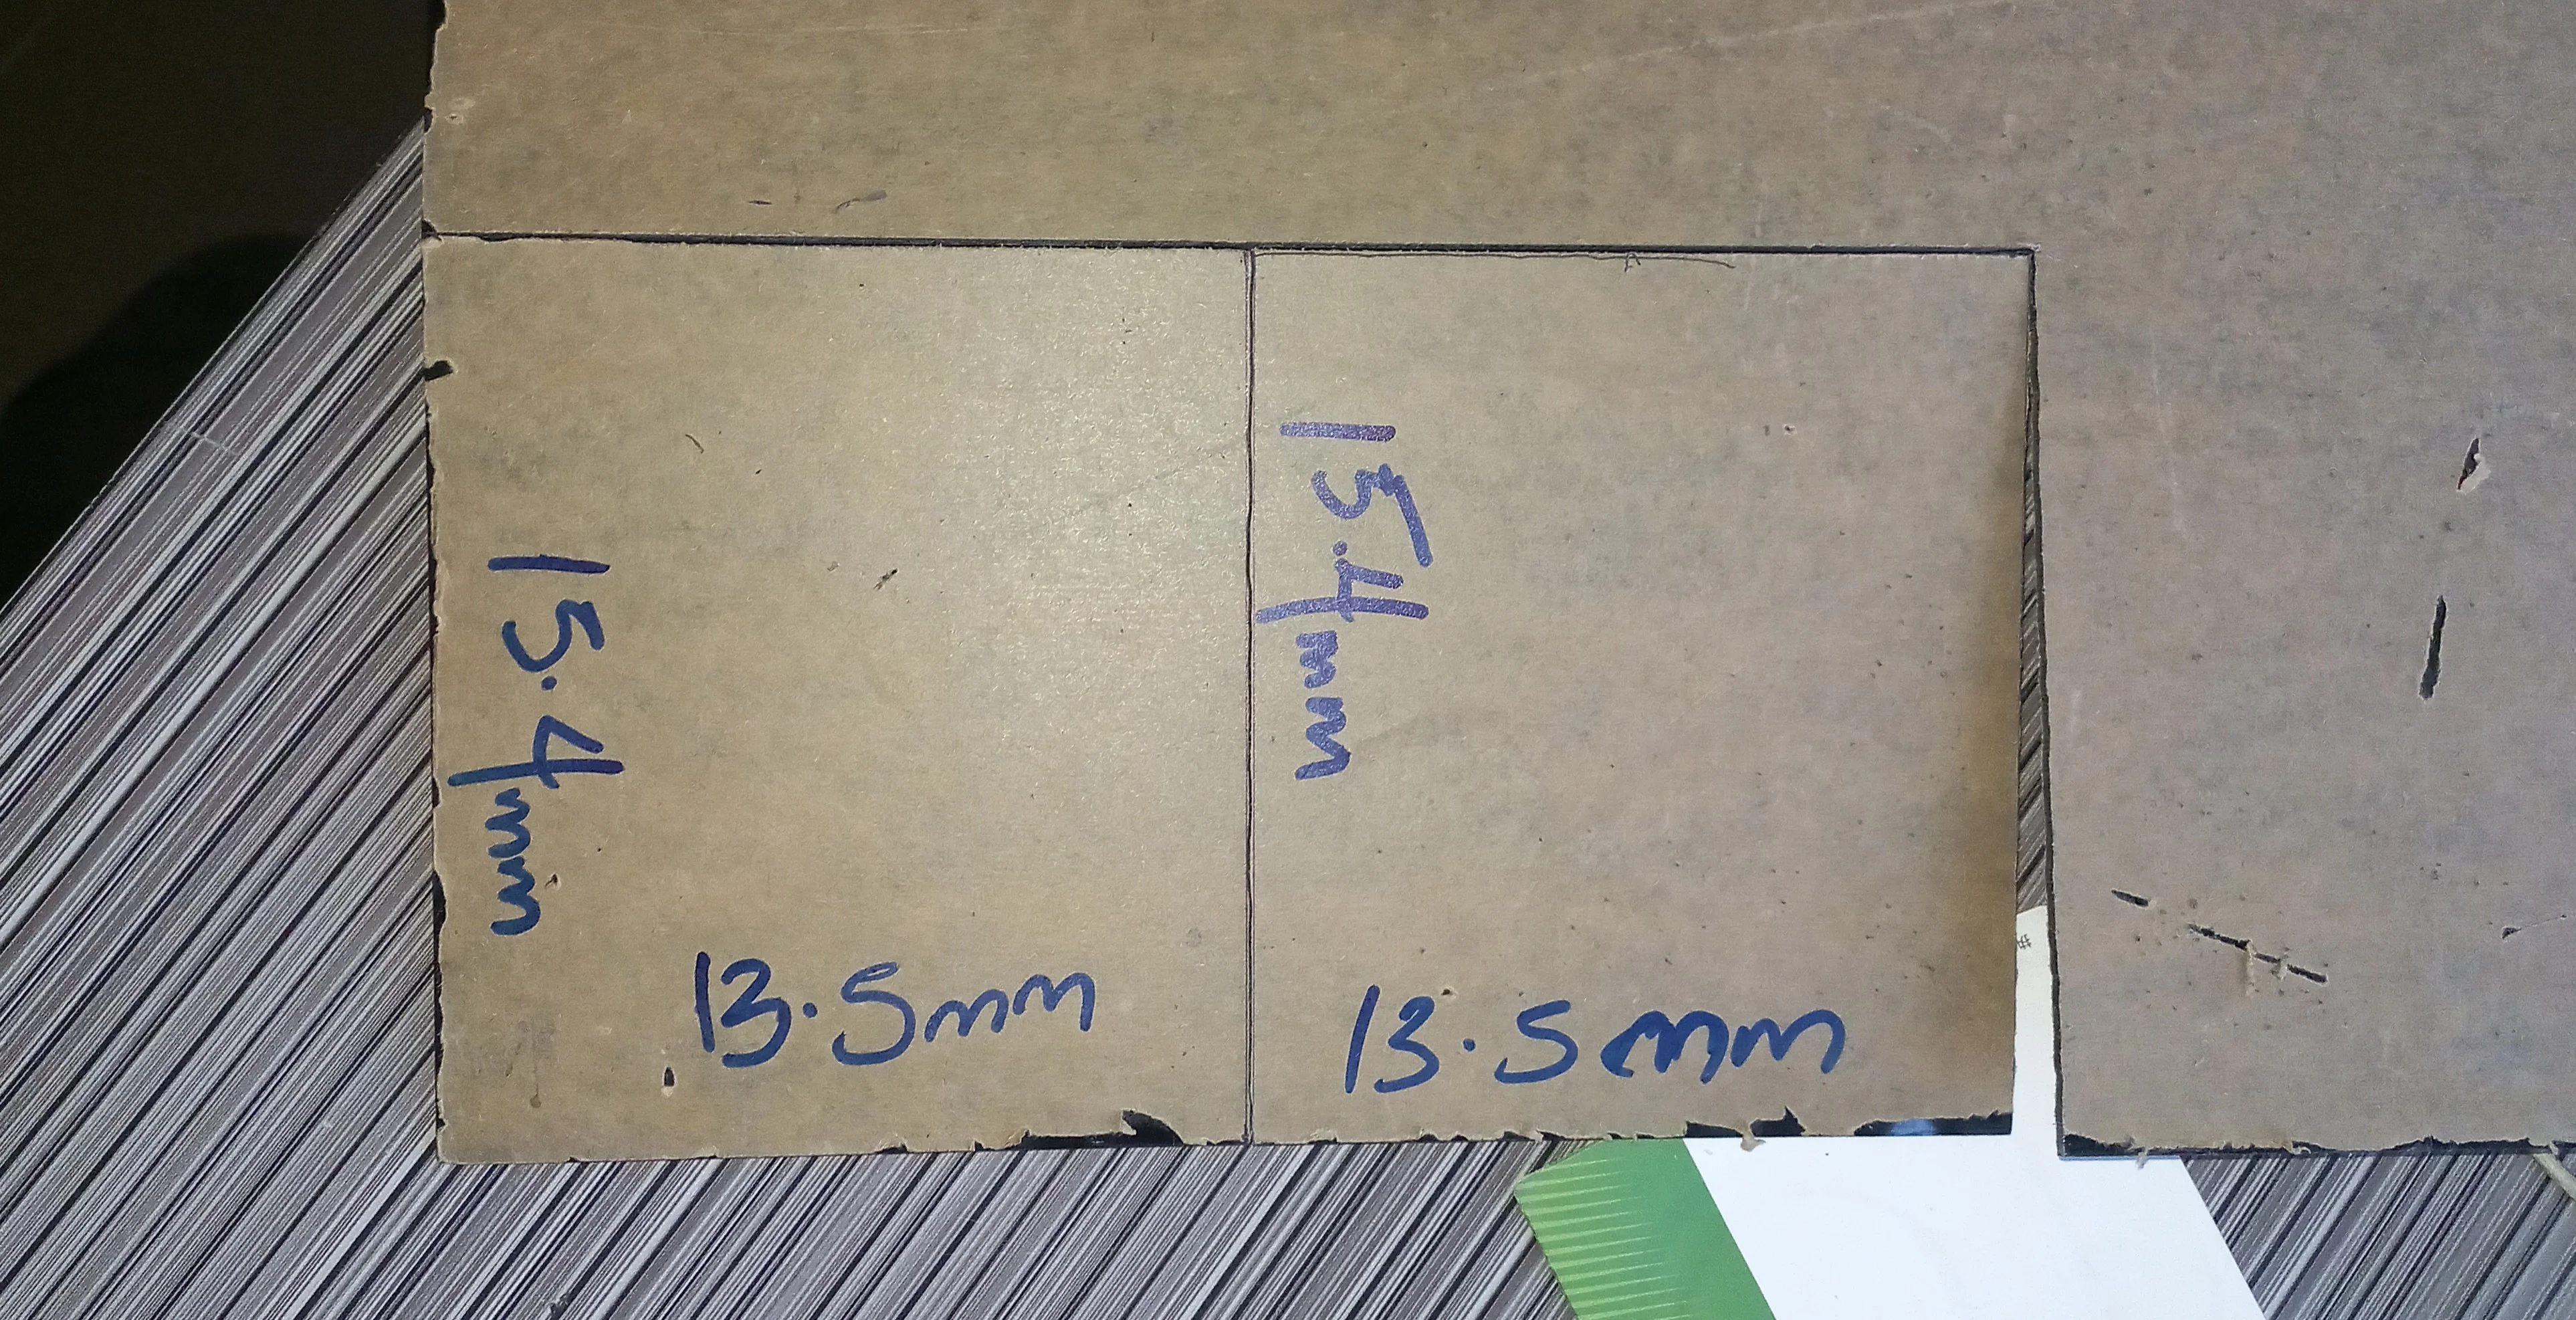 15.4mm
13.5mm
15.4mm
13.5mm